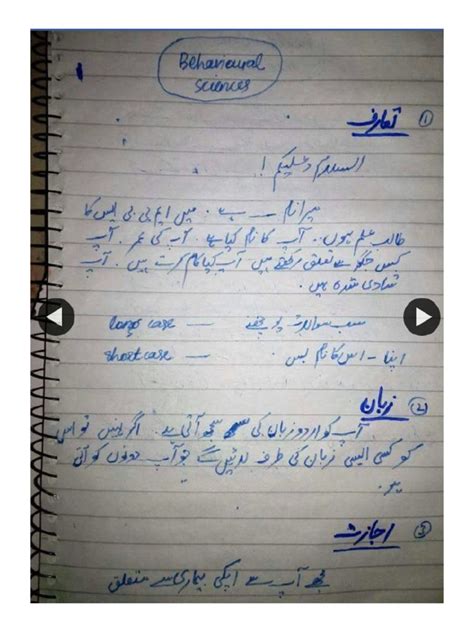 Behavioural
Sciences
1
① تعارف
السلام وعلیکم !
میرا نام ــ ہے . میں ایم بی بی ایس کا
طالب علم ہوں . آپ کا نام کیا ہے . آپ کی عمر . آپ
کس جگہ سے تعلق رکھتے ہیں آپ کیا کام کرتے ہیں . آپ
شادی شدہ ہیں .
سب سوالات پوچھنے — long case
اپنا - اس کا نام بس — short case
② زبان
آپ کو اردو زبان کی سمجھ آتی ہے . اگر نہیں تو اس
کو کسی ایسی زبان کی طرف گے جو آپ دونوں کو آتی
ہو .
③ اجازت
مجھے آپ سے آپکی بیماری سے متعلق